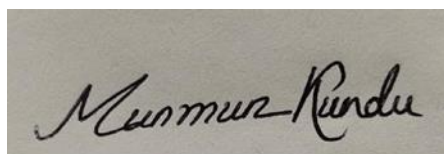 Munmun Kundu